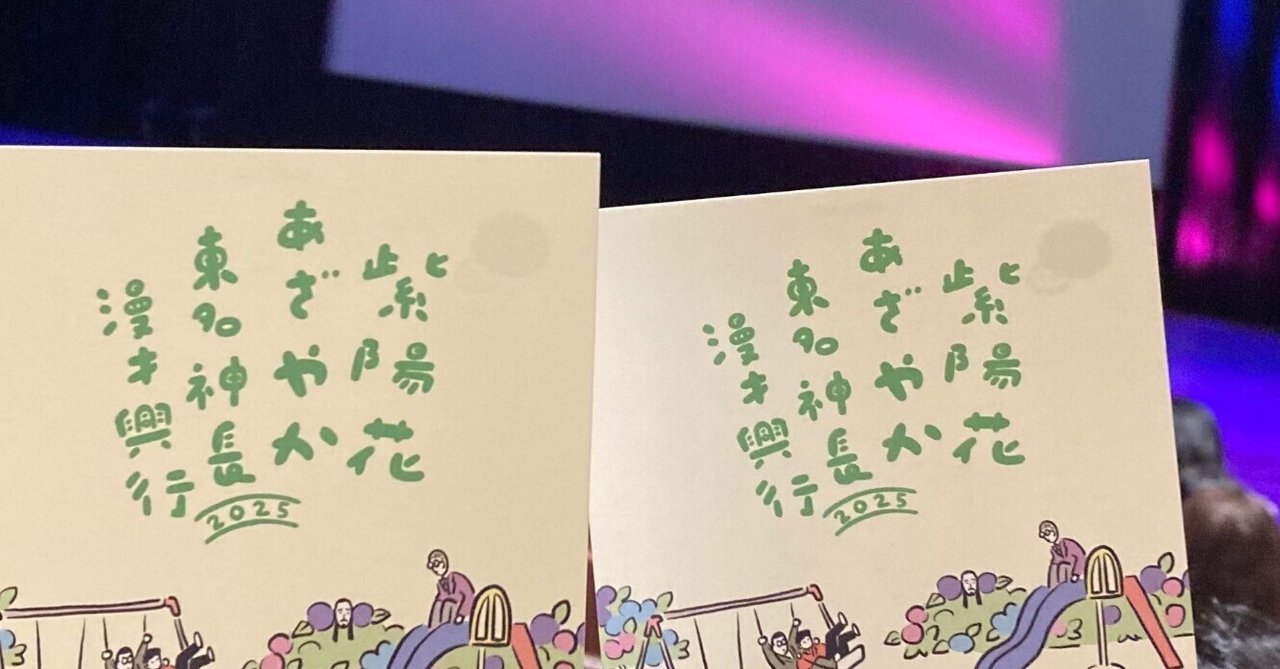 紫陽花
あざやか
東名神長
漫才興行
2025
紫陽花
あざやか
東名神長
漫才興行
2025